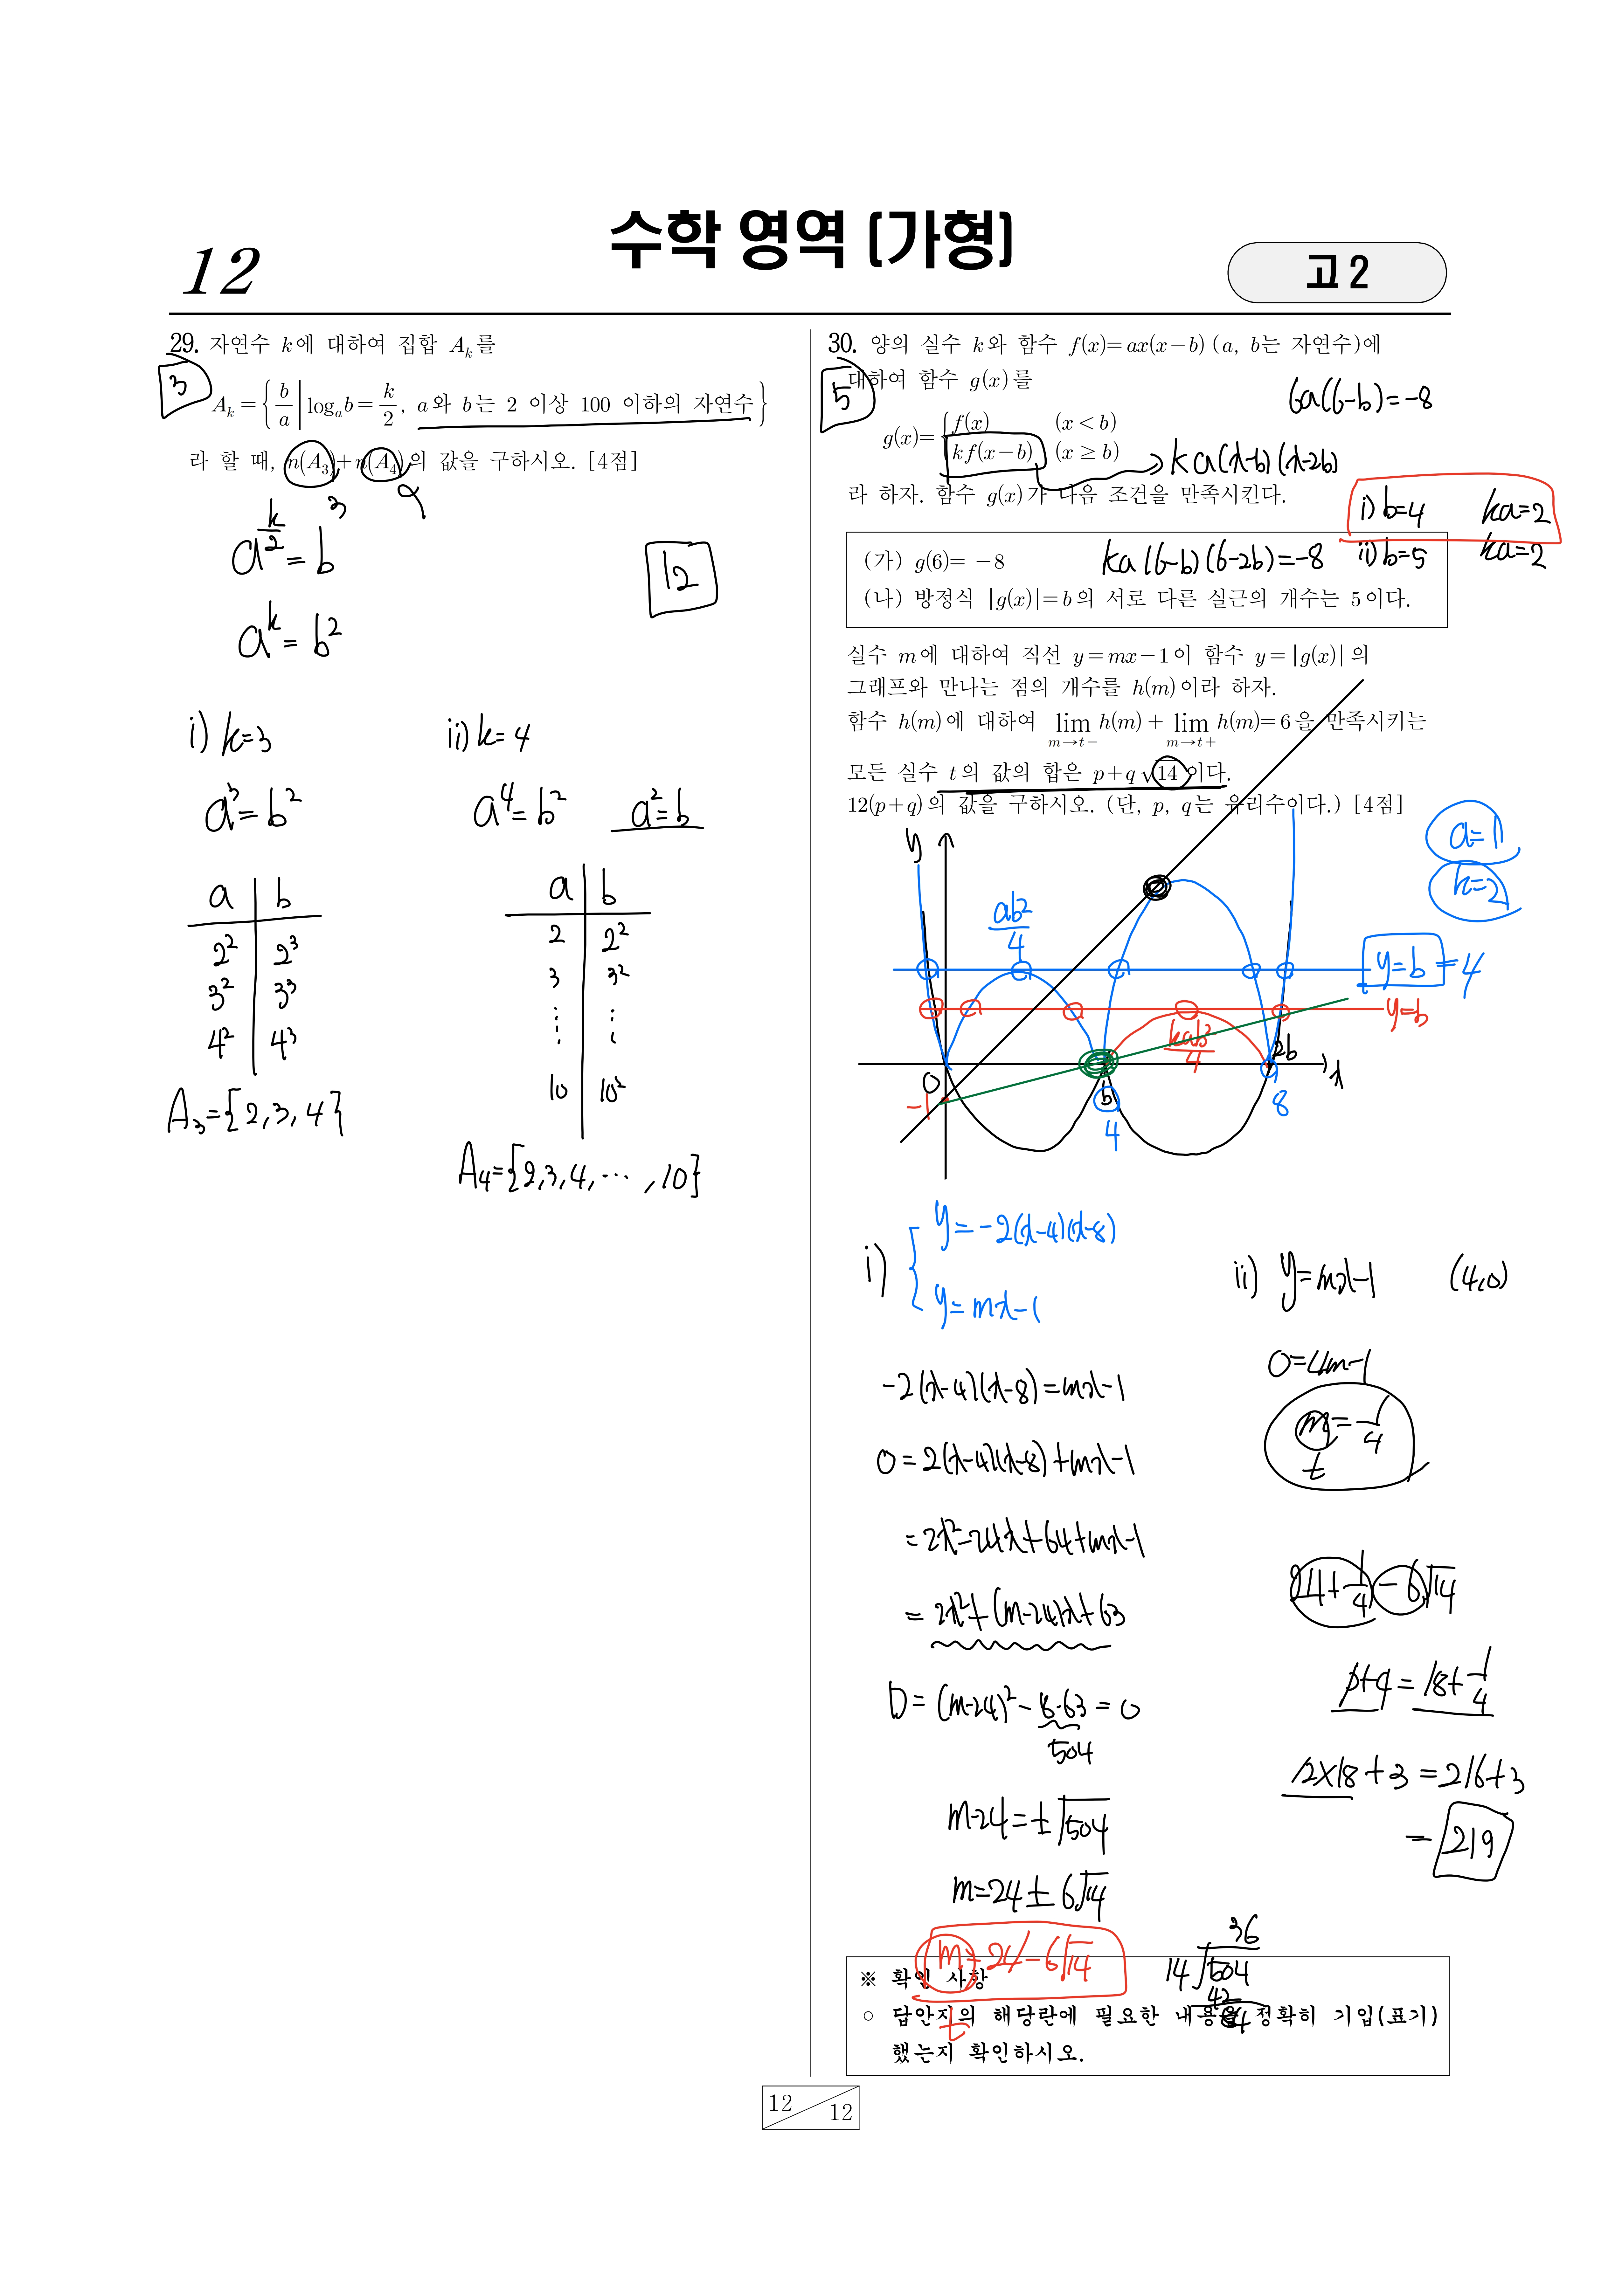 12
수학 영역 (가형)
고 2
29. 자연수 k에 대하여 집합 A_k를
3
A_k = { b/a | log_a b = k/2, a와 b는 2 이상 100 이하의 자연수 }
라 할 때, n(A_3)+n(A_4)의 값을 구하시오. [4점]
3 9
a^(k/2) = b
12
a^k = b^2
i) k=3
a^3 = b^2
a b
2^2 2^3
3^2 3^3
4^2 4^3
A_3={2,3,4}
ii) k=4
a^4=b^2 a^2=b
a b
2 2^2
3 3^2
⋮ ⋮
10 10^2
A_4={2,3,4,⋯,10}
30. 양의 실수 k와 함수 f(x)=ax(x-b) (a, b는 자연수)에
대하여 함수 g(x)를
5
6a(6-b)=-8
g(x)= { f(x) (x < b)
kf(x-b) (x ≥ b)
ka(x-b)(x-2b)
라 하자. 함수 g(x)가 다음 조건을 만족시킨다.
i) b=4 ka=2
ii) b=5 ka=2
(가) g(6)= -8
ka(6-b)(6-2b)=-8
(나) 방정식 |g(x)|=b의 서로 다른 실근의 개수는 5이다.
실수 m에 대하여 직선 y=mx-1이 함수 y=|g(x)|의
그래프와 만나는 점의 개수를 h(m)이라 하자.
함수 h(m)에 대하여 lim_{m→t-} h(m) + lim_{m→t+} h(m)=6을 만족시키는
모든 실수 t의 값의 합은 p+q√14이다.
12(p+q)의 값을 구하시오. (단, p, q는 유리수이다.) [4점]
a=1
k=2
y
ab^2/4
y=b =4
y=b
kab^2/4
2b
x
0
-1
b
4
8
i) { y=-2(x-4)(x-8)
y=mx-1
-2(x-4)(x-8)=mx-1
0=2(x-4)(x-8)+mx-1
=2x^2-24x+64+mx-1
=2x^2+(m-24)x+63
D=(m-24)^2-8·63=0
504
m-24=±√504
m=24±6√14
m=24-6√14
t
36
14 504
42
84
ii) y=mx-1 (4,0)
0=4m-1
m=1/4
t
24+1/4-6√14
p+q=18+1/4
12×18+3=216+3
=219
※ 확인 사항
○ 답안지의 해당란에 필요한 내용을 정확히 기입(표기)
했는지 확인하시오.
12
12